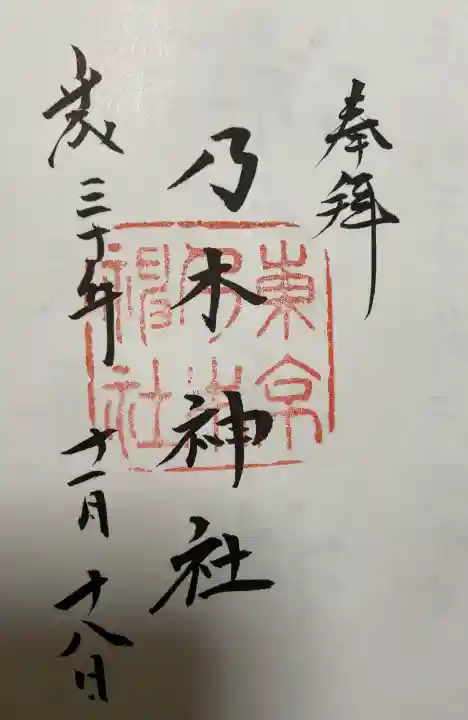 奉拝
乃木神社
歳三十年 十一月 十八日
東京
乃木
神社